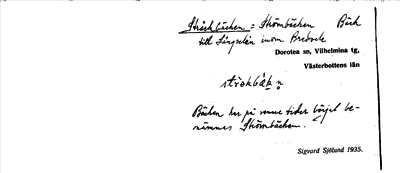 Stråkbäcken = Strömbäcken Bäck
till Långselån inom Bredsele
Dorotea sn, Vilhelmina tg,
Västerbottens län
Bäcken har på senare tider börjat be-
nämnas Strömbäcken.
Sigvard Sjölund 1935.